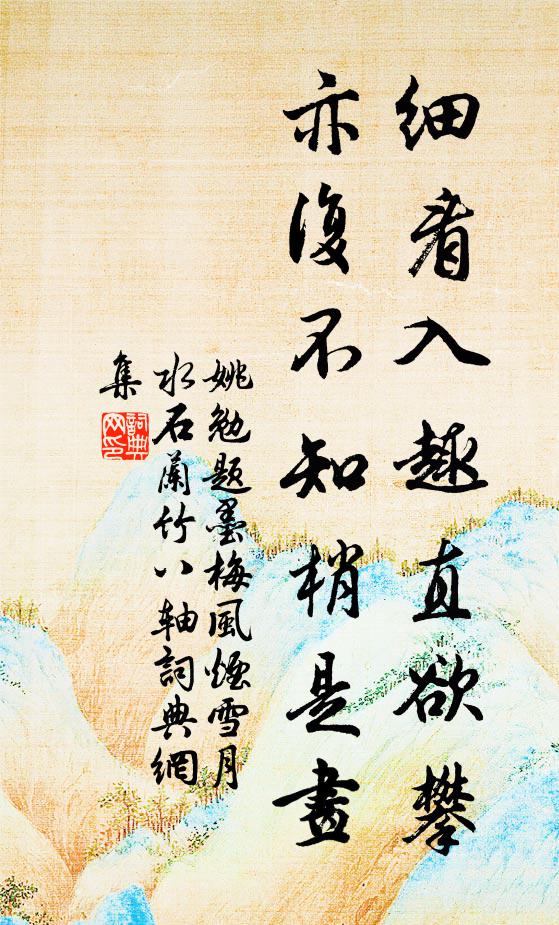 细看入趣直欲攀
亦复不知梢是畫
姚勉题墨梅風煙雪月
水石蘭竹八轴詞典網
集
詞典
网印